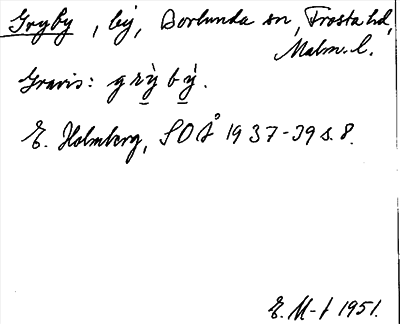 Gryby, by, Borlunda sn, Frosta hd,
Malm. l.
Gravis: grỳ bỳ.
E. Holmberg, SOÅ 1937-39 s. 8.
E. M-t 1951.